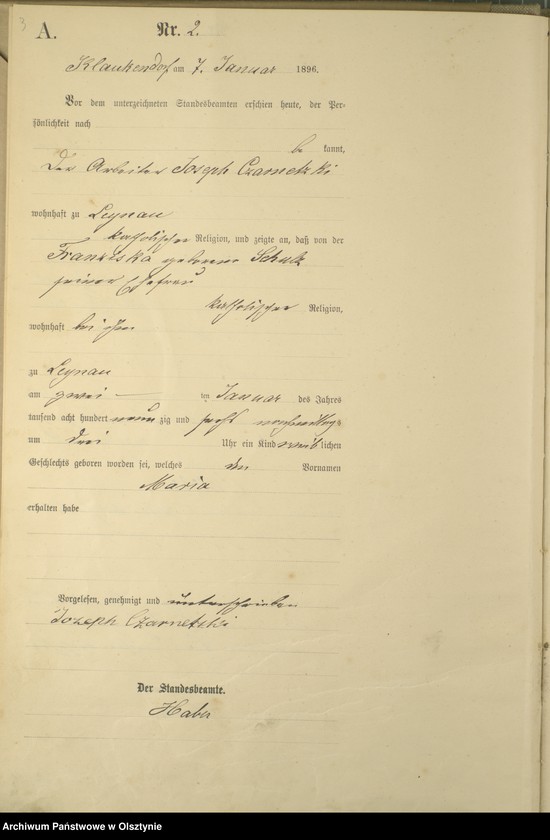 3
A.
Nr. 2.
Klaukendorf am 7. Januar 1896.
Vor dem unterzeichneten Standesbeamten erschien heute, der Per-
sönlichkeit nach
be kannt,
Der Arbeiter Joseph Czarnetzki
wohnhaft zu Leynau
katholischer Religion, und zeigte an, daß von der
Franziska geborene Schulz
seiner Ehefrau
katholischer Religion,
wohnhaft bei ihm
zu Leynau
am zwei ten Januar des Jahres
tausend acht hundert neun zig und sechs nachmittags
um drei Uhr ein Kind weib lichen
Geschlechts geboren worden sei, welches den Vornamen
Maria
erhalten habe
Vorgelesen, genehmigt und unterschrieben
Joseph Czarnetzki
Der Standesbeamte.
Archiwum Państwowe w Olsztynie